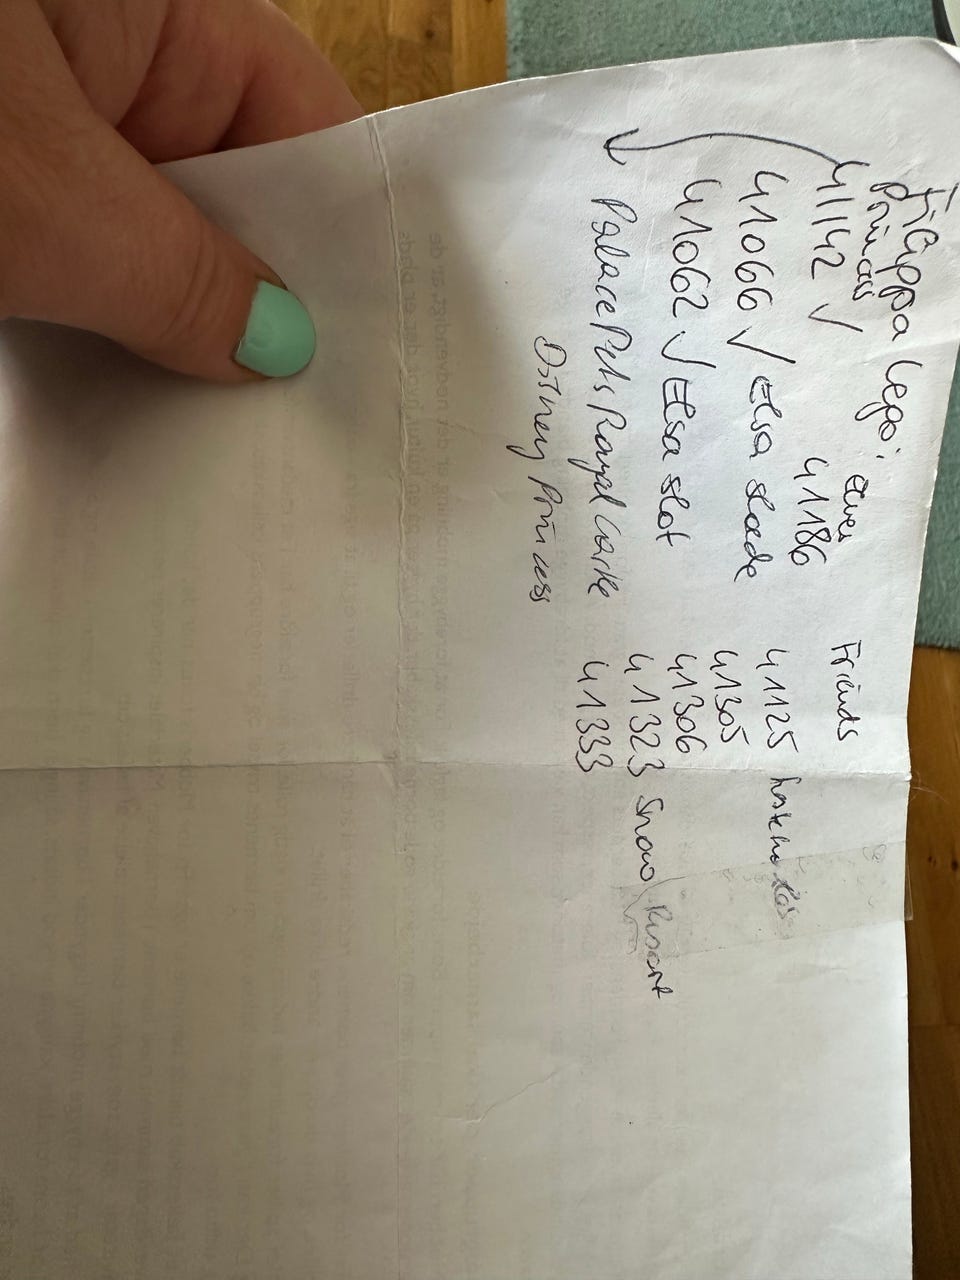 Filippa Lego:
Princess
Elves
Friends
41142 ✓
41186
41066 ✓ Elsa slæde
41125
41062 ✓ Elsa slot
41305
41306
Palace Pets Royal Castle
41323 Snow Resort
Disney Princess
41333